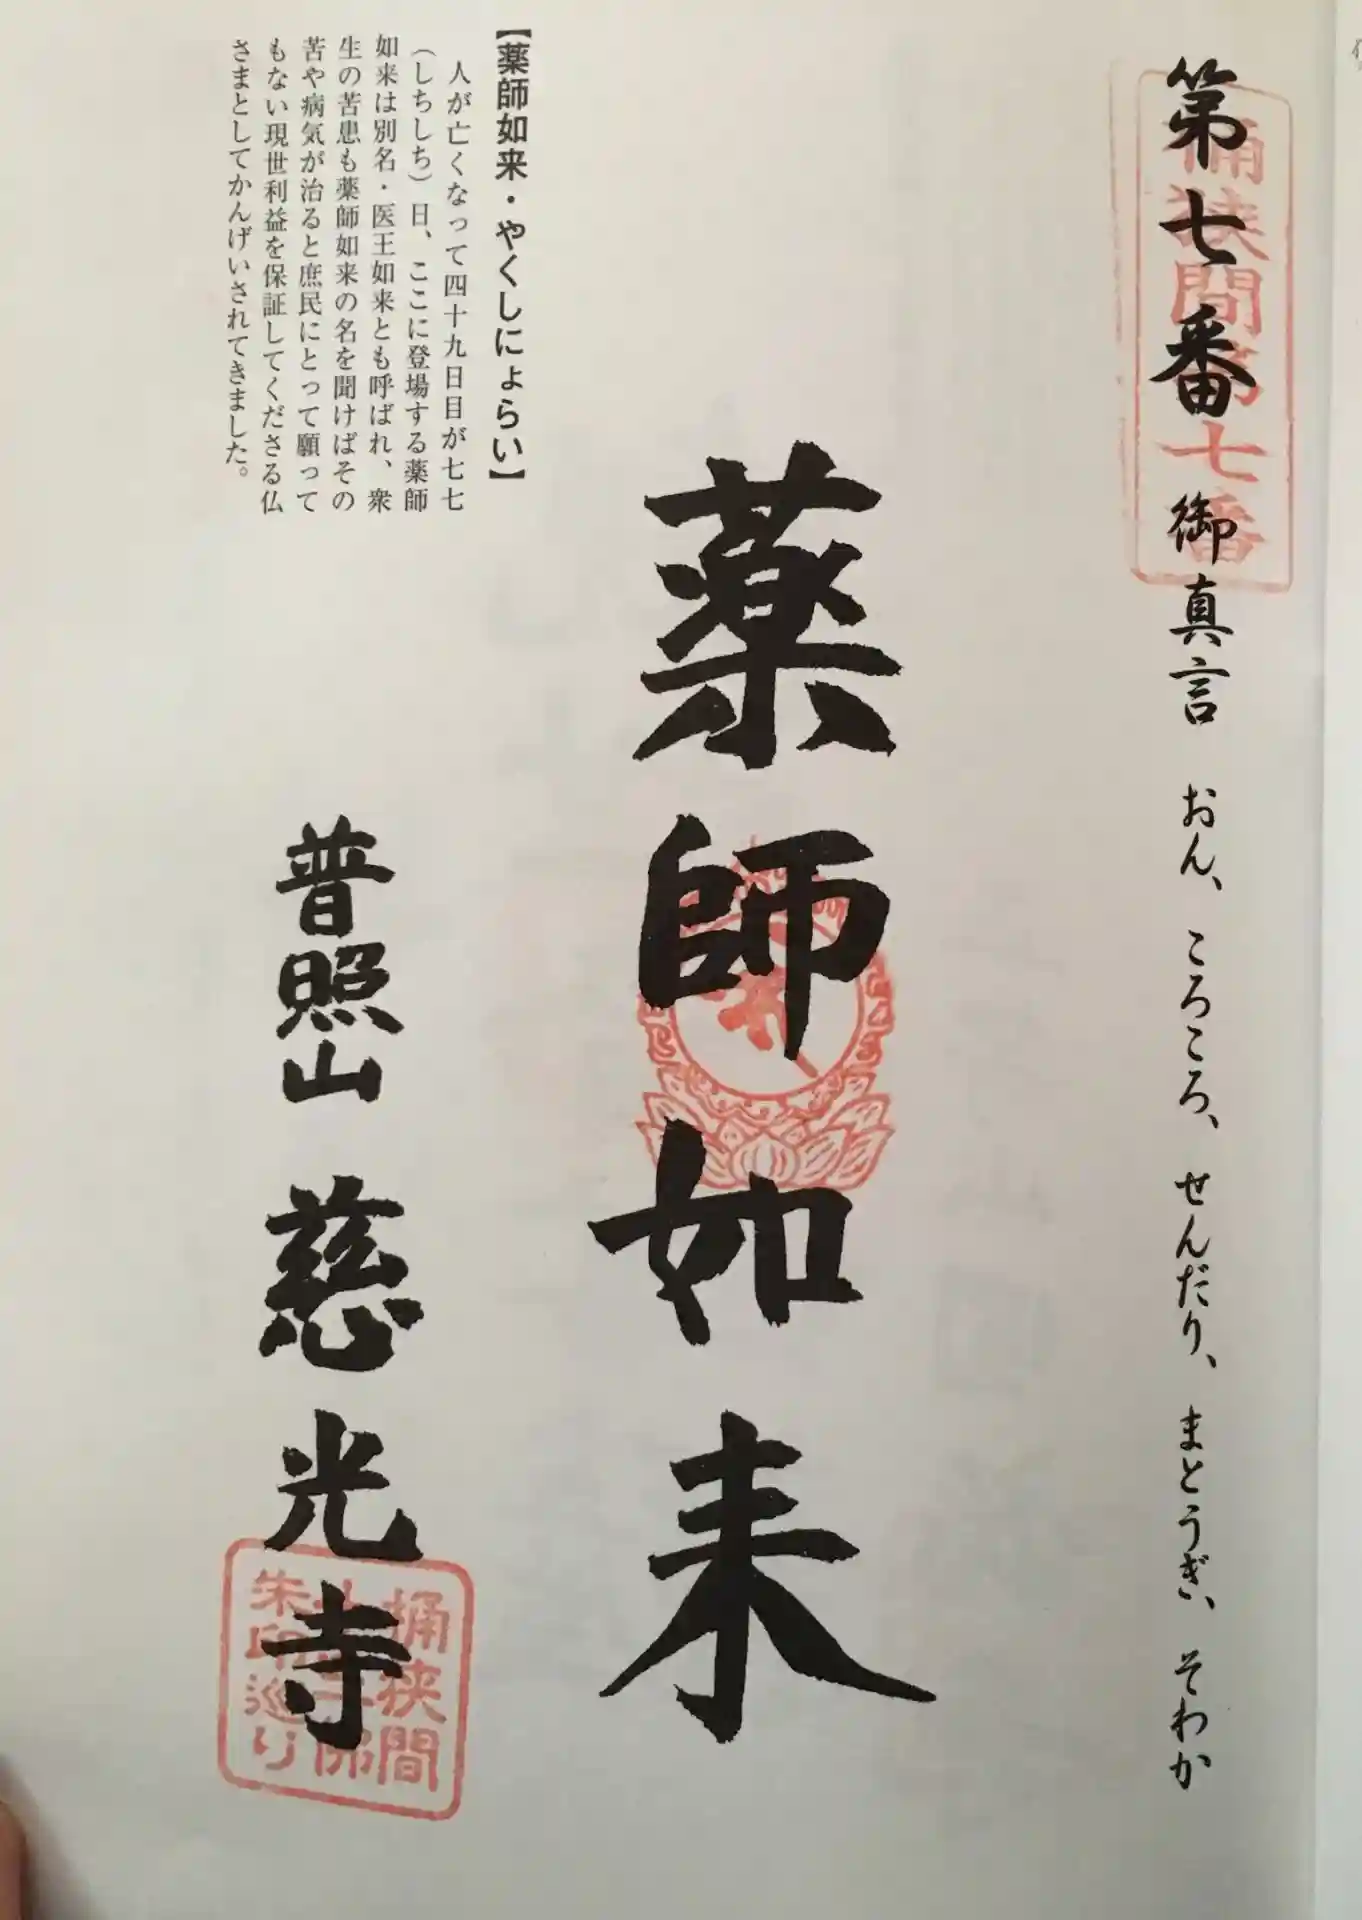 第七番 御真言 おん、ころころ、せんだり、まとうぎ、そわか
桶狭間第七番
薬師如来
【薬師如来・やくしにょらい】
人が亡くなって四十九日目が七七
（しちしち）日、ここに登場する薬師
如来は別名・医王如来とも呼ばれ、衆
生の苦患も薬師如来の名を聞けばその
苦や病気が治ると庶民にとって願って
もない現世利益を保証してくださる仏
さまとしてかんげいされてきました。
普照山 慈光寺
桶狭間
十三佛
朱印巡り